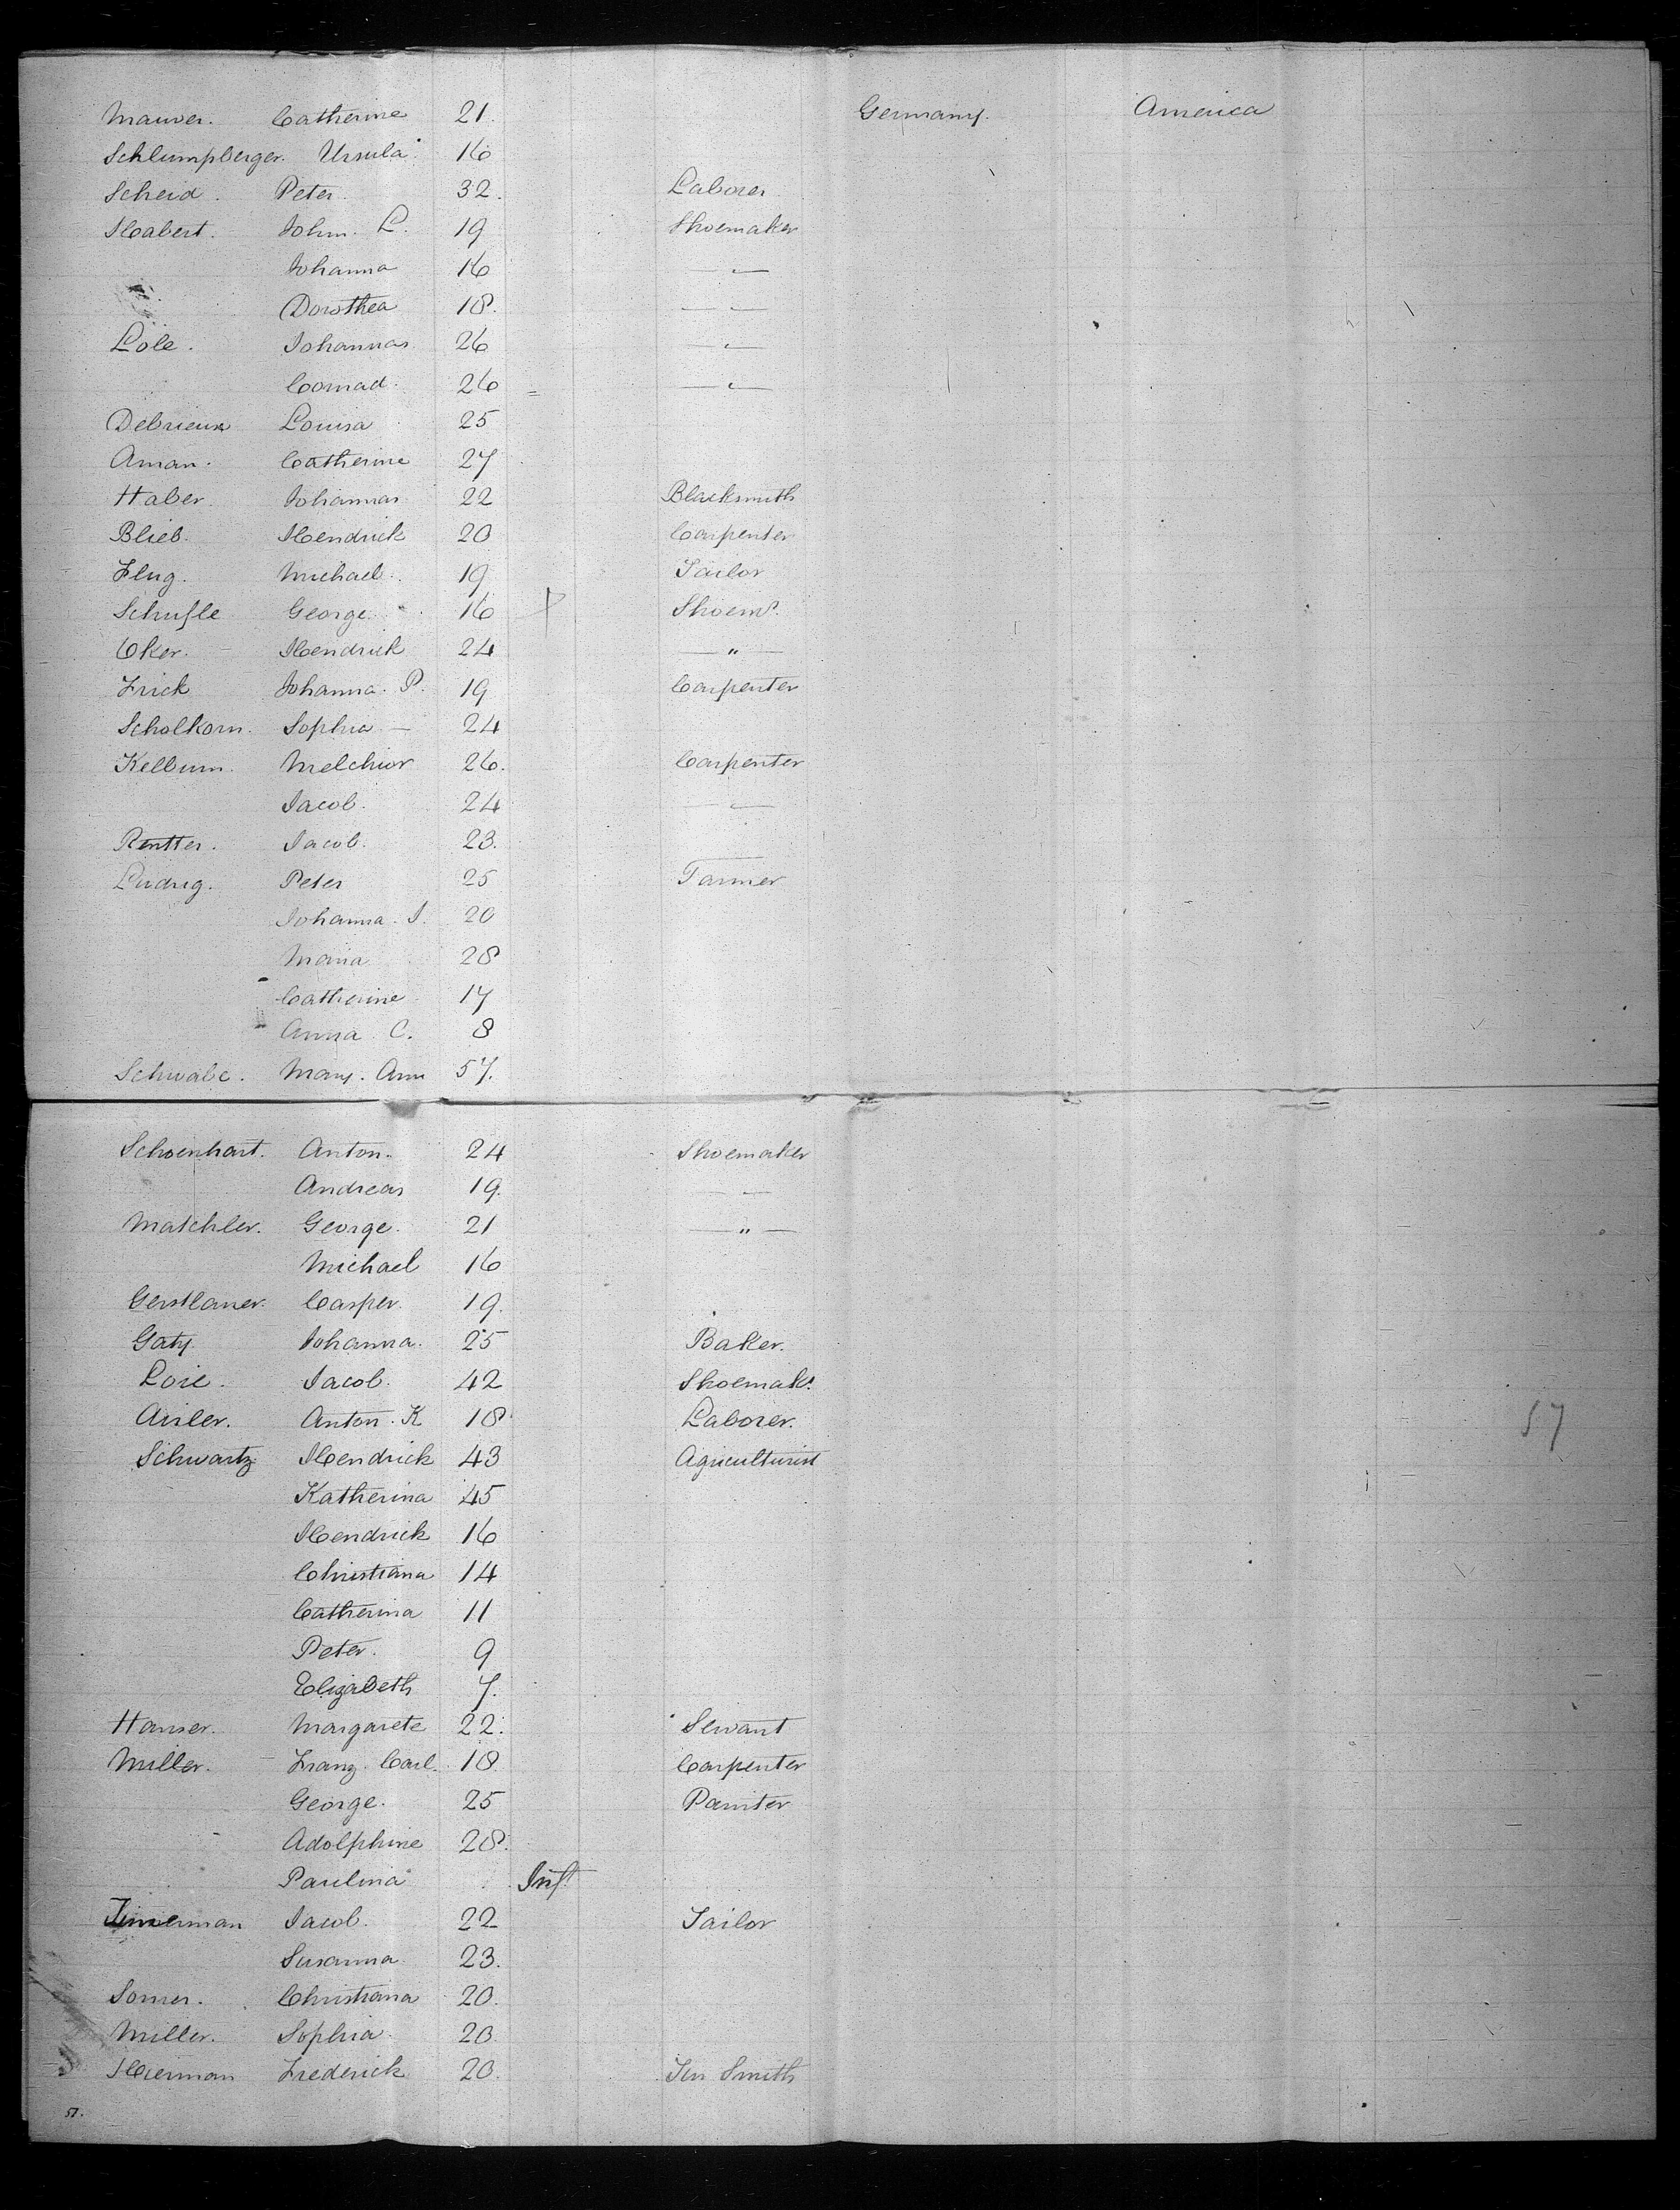 Mauver. Catherine 21. Germany. America
Schlumpberger. Ursula 16
Scheid. Peter. 32. Laborer
Habert. John. L. 19 Shoemaker
Johanna 16 — " —
Dorothea 18. — " —
Lole. Johannas 26 — " —
Conrad. 26 — " —
Debrieux Louisa 25
Aman. Catherine 27
Haber. Johannas 22 Blacksmith
Blieb. Hendrick 20 Carpenter
Flug. Michael. 19 Tailor
Schufle George. 16 X Shoemr.
Oker. Hendrick 24 — " —
Frick Johanna. P. 19 Carpenter
Scholkorn. Sophia — 24
Kellum. Melchior 26. Carpenter
Jacob. 24 — " —
Rentter. Jacob. 23.
Ludrig. Peter 25 Farmer
Johanna. J. 20
Maria 28
Catherine 17
Anna C. 8
Schwabe. Mary. Ann 57.
Schoenhart. Anton. 24 Shoemaker
Andreas 19. — " —
Matchler. George. 21 — " —
Michael 16
Gerstlaner. Casper. 19.
Gaty. Johanna. 25 Baker.
Loie. Jacob. 42 Shoemakr.
Aisler. Anton. K 18 Laborer. 57
Schwartz Hendrick 43 Agriculturist
Katherina 45
Hendrick 16
Christiana 14
Catherina 11
Peter. 9
Elizabeth 7.
Hanser. Margarete 22. Servant
Miller. Franz. Carl. 18 Carpenter
George. 25 Painter
Adolphine 28.
Paulina Inft
Jacob. 22 Tailor
Susanna 23.
Somer. Christiana 20.
Miller. Sophia. 20
Herman Frederick 20. Tin Smith
57.